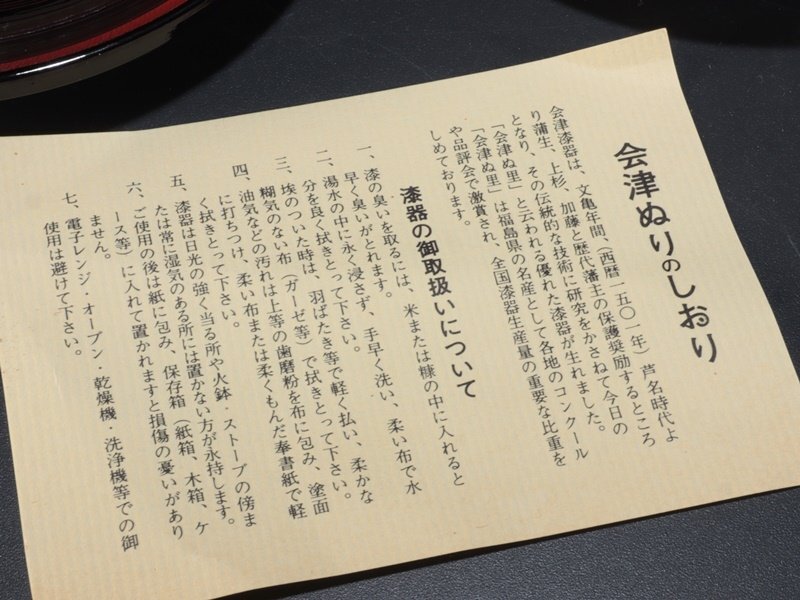 会津ぬりのしおり
会津漆器は、文亀年間、(西暦一五〇一年)芦名時代よ
り蒲生、上杉、加藤と歴代藩主の保護奨励するところ
となり、その伝統的な技術に研究をかさねて今日の
「会津ぬ里」と云われる優れた漆器が生れました。
「会津ぬ里」は福島県の名産として各地のコンクール
や品評会で激賞され、全国漆器生産量の重要な比重を
しめております。
漆器の御取扱いについて
一、漆の臭いを取るには、米または糠の中に入れると
早く臭いがとれます。
二、湯水の中に永く浸さず、手早く洗い、柔い布で水
分を良く拭きとって下さい。
三、埃のついた時は、羽ばたき等で軽く払い、柔かな
糊気のない布(ガーゼ等)で拭きとって下さい。
四、油気などの汚れは上等の歯磨粉を布に包み、塗面
に打ちつけ、柔い布または柔くもんだ奉書紙で軽
く拭きとって下さい。
五、漆器は日光の強く当る所や火鉢・ストーブの傍ま
たは常に湿気のある所には置かない方が永持します。
六、ご使用の後は紙に包み、保存箱(紙箱、木箱、ケ
ース等)に入れて置かれますと損傷の憂いがあり
ません。
七、電子レンジ・オーブン・乾燥機・洗浄機等での御
使用は避けて下さい。